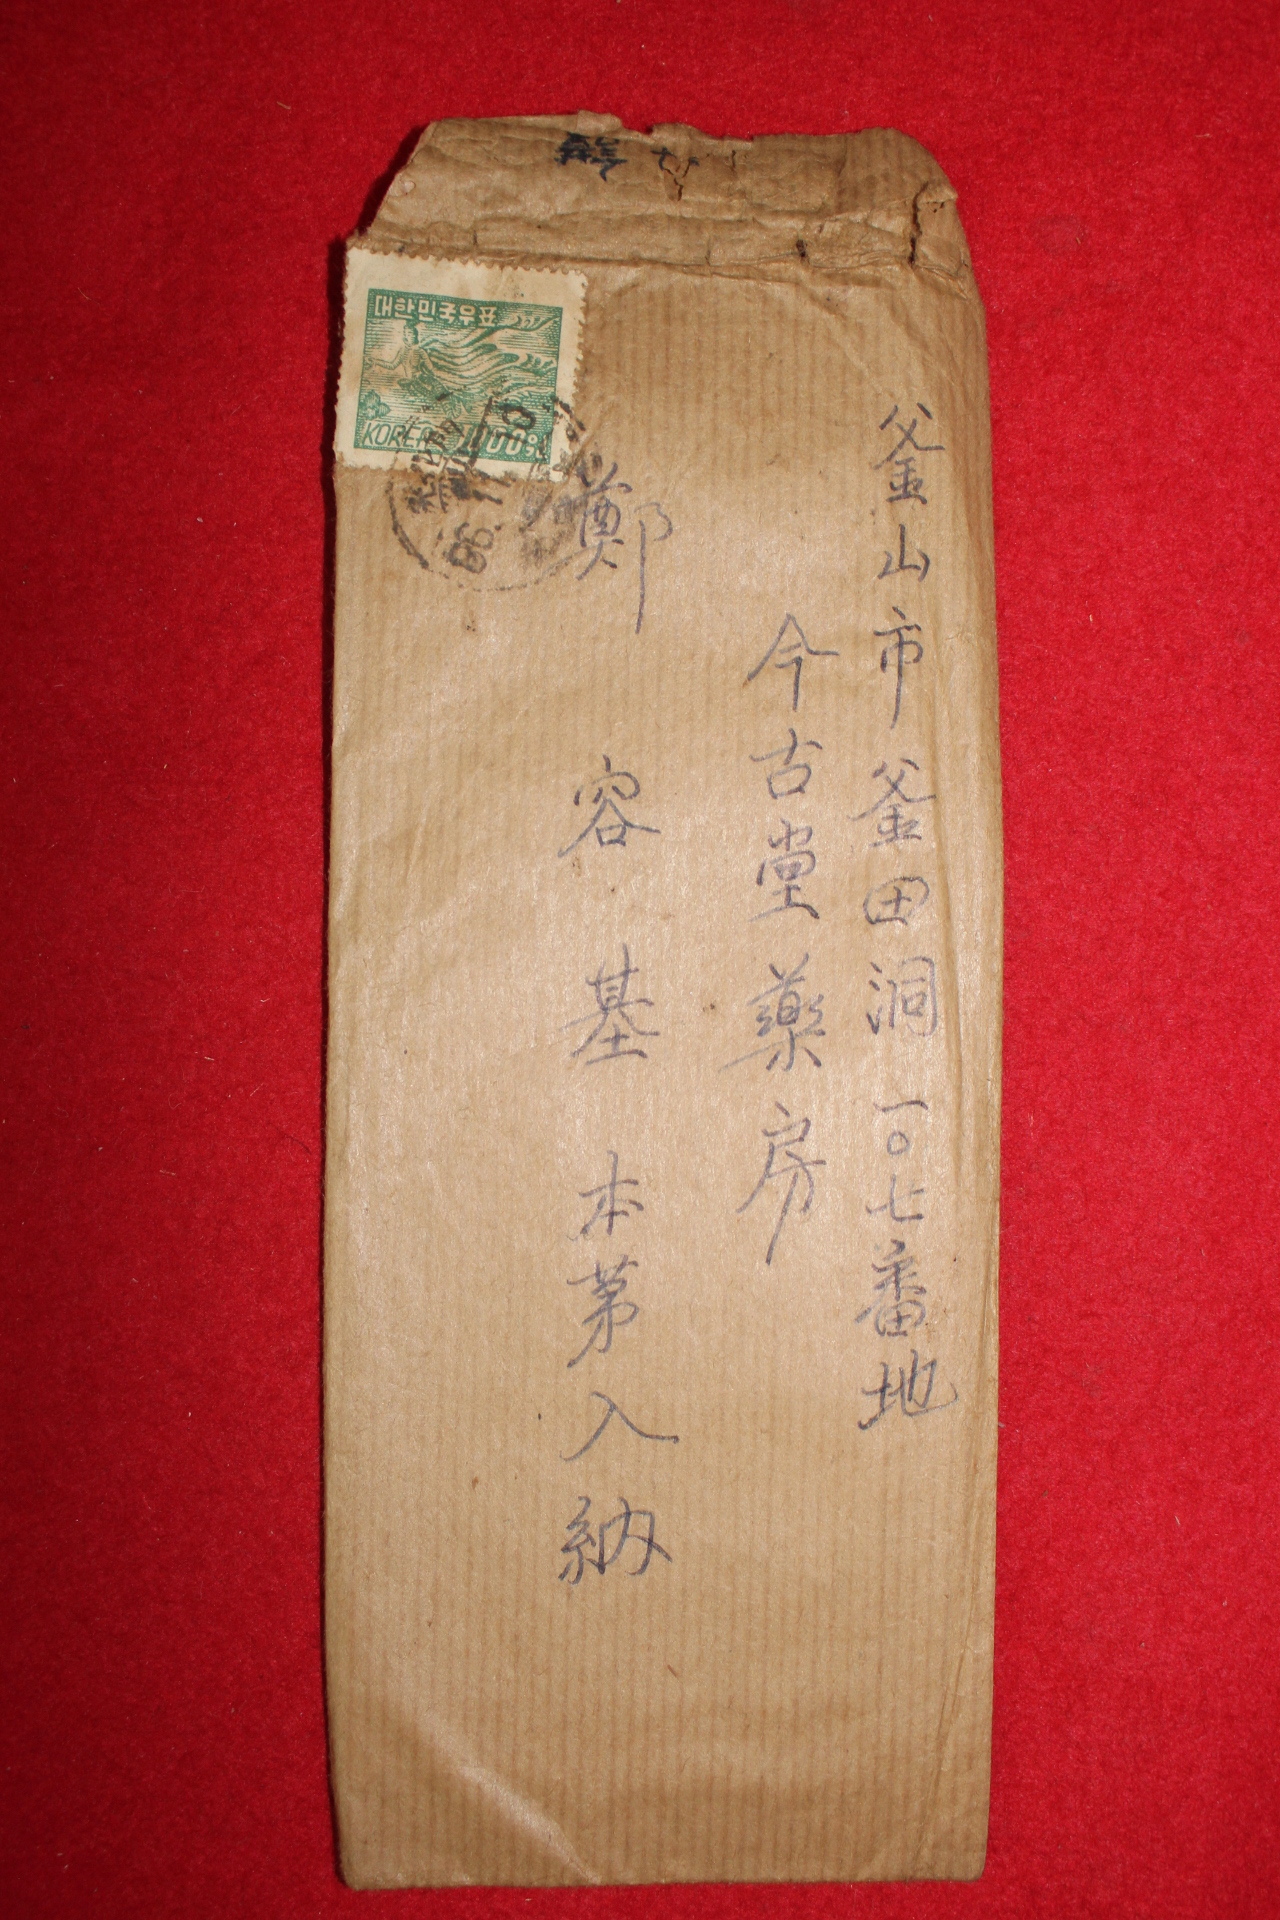 釜山市釜田洞一〇七番地
今古堂藥房
鄭容基本第入納
대한민국우표
KOREA 1000원